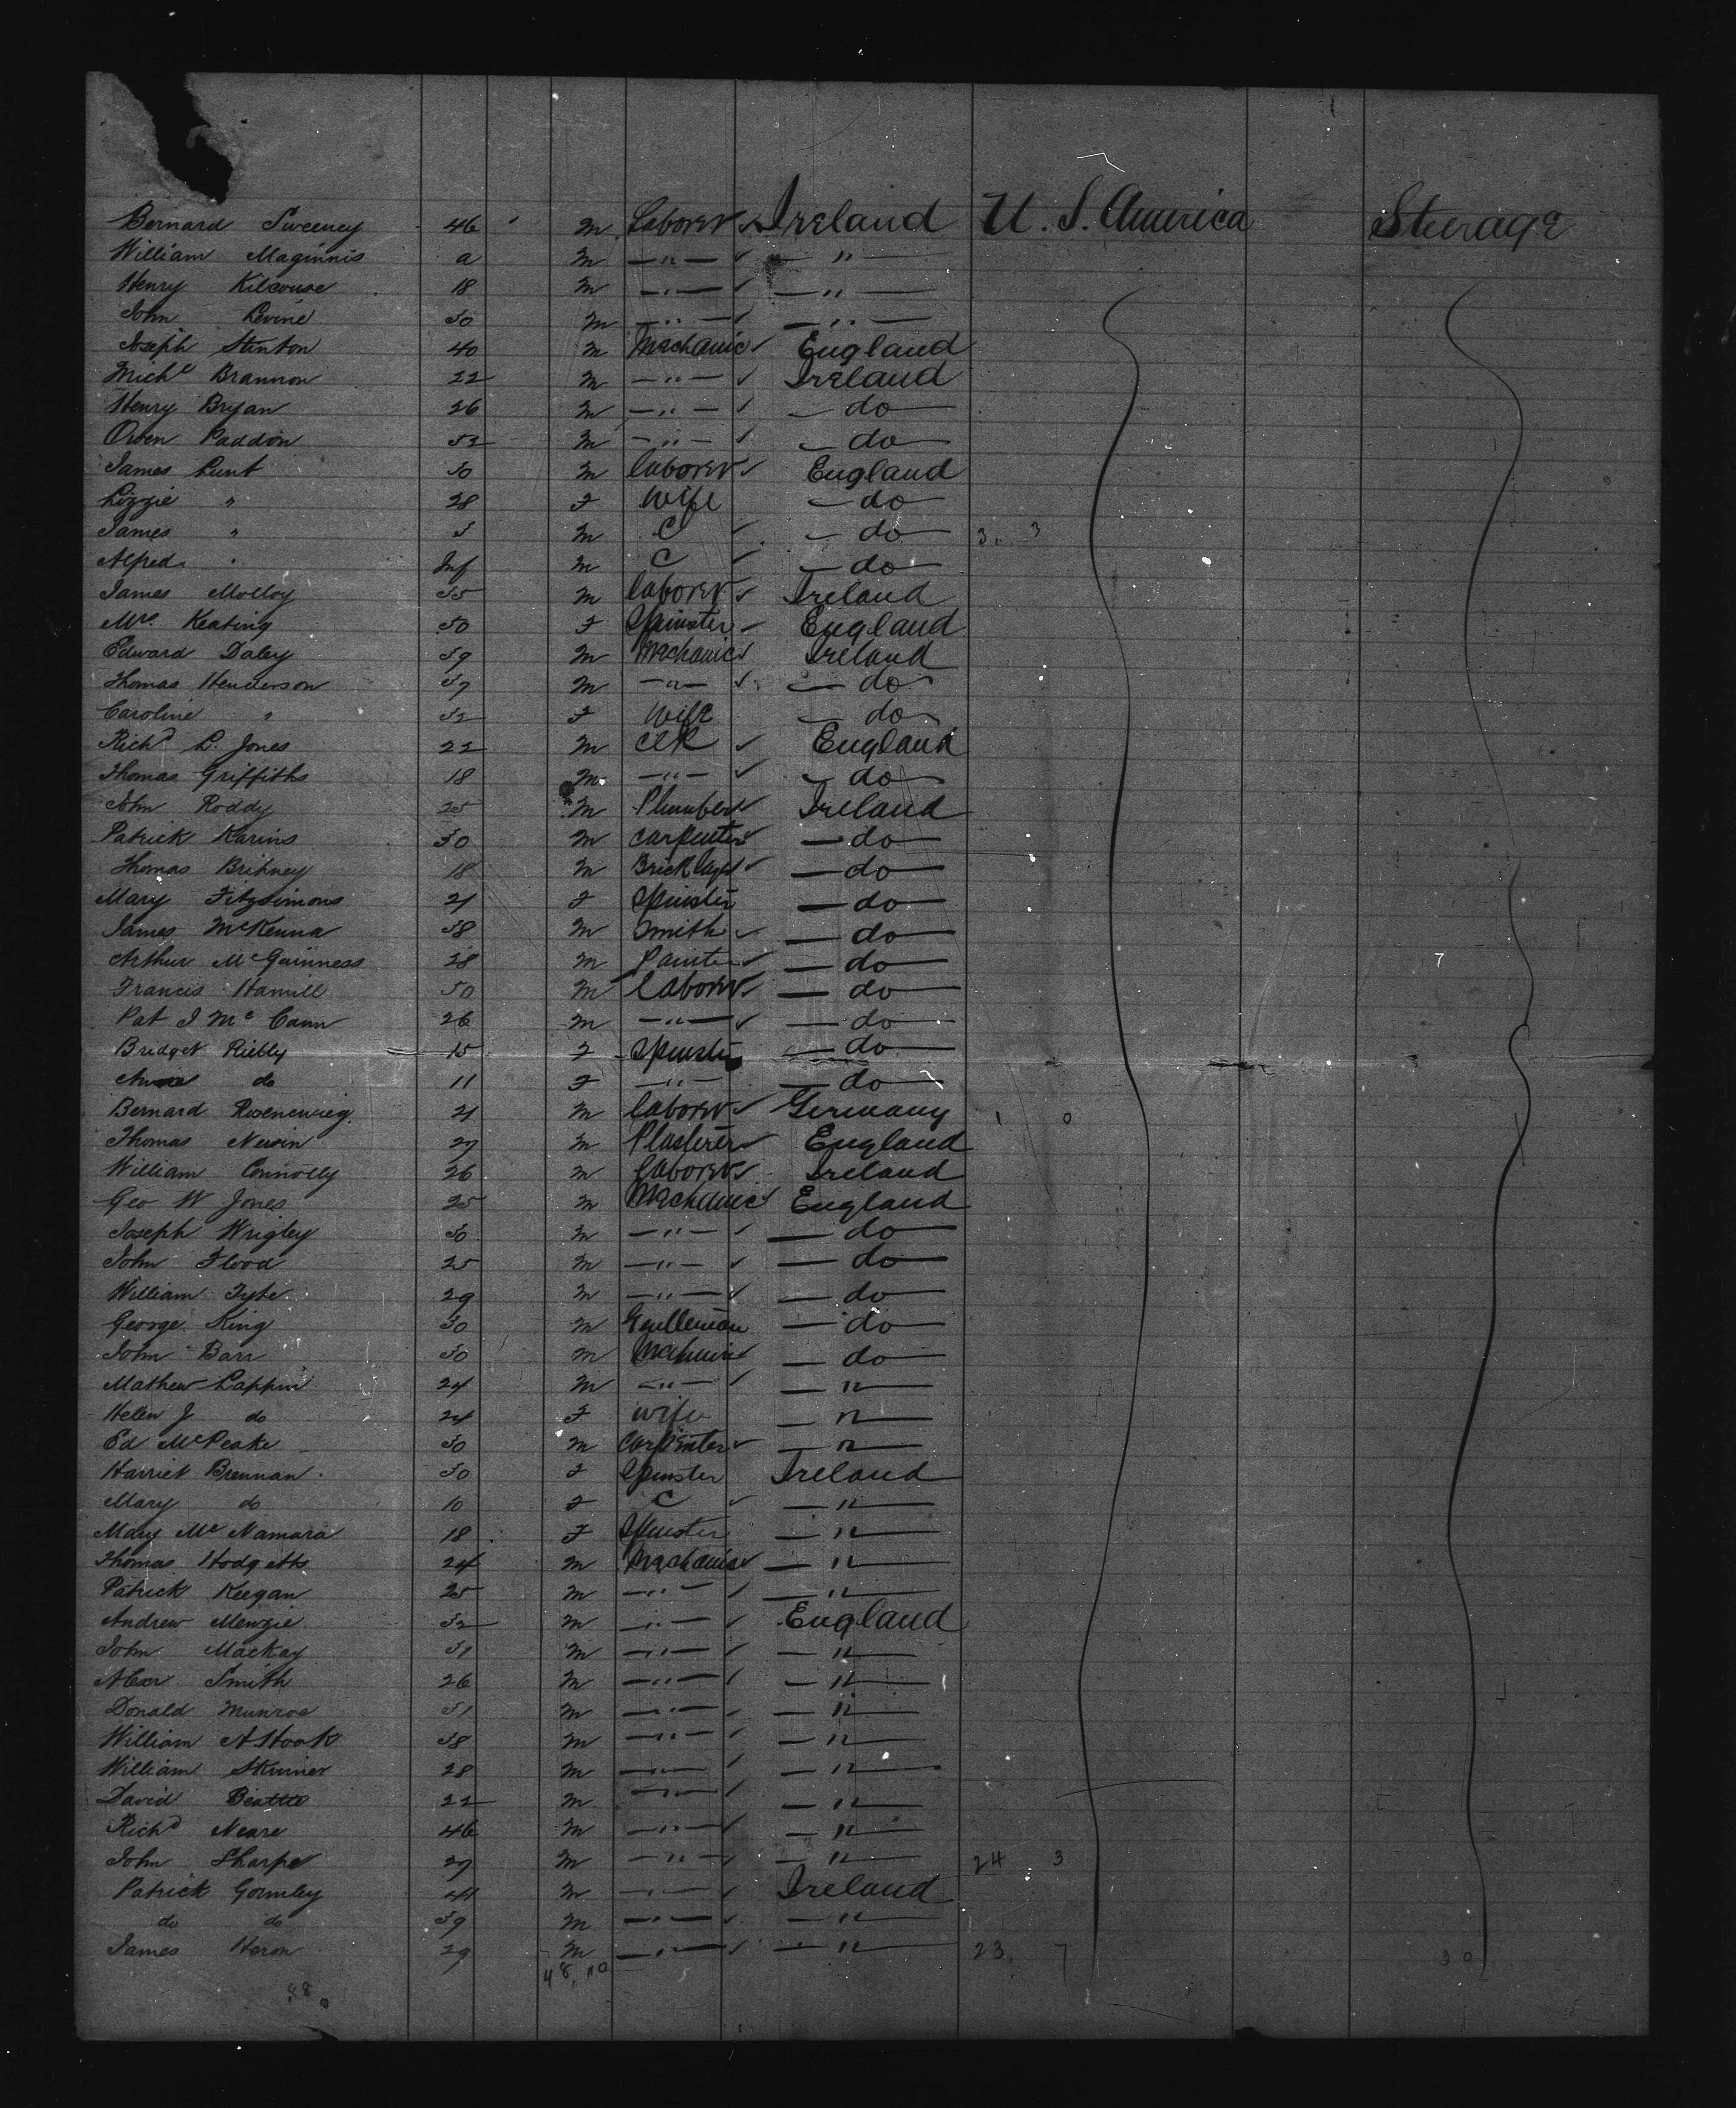 Bernard Sweeney 46 m Laborer Ireland U. S. America Steerage
William Maginnis a m " "
Henry Kilcouse 18 m " "
John Levine 30 m " "
Joseph Stinton 40 m Mechanic England
Michl Brannon 22 m " Ireland
Henry Bryan 26 m " do
Owen Paddon 32 m " do
James Lunt 30 m laborer England
Lizzie " 28 F wife do
James " 3 m C do 3. 3
Alfred " Inf m C do
James Molloy 35 m laborer Ireland
Mrs. Keating 50 F Spinster England
Edward Daley 39 m Mechanic Ireland
Thomas Henderson 37 m " do
Caroline " 32 F wife do
Richd L. Jones 22 m Clk England
Thomas Griffiths 18 m " do
John Roddy 25 m Plumber Ireland
Patrick Karins 30 m Carpenter do
Thomas Britney 18 m Bricklayer do
Mary Fitzsimons 21 F Spinster do
James McKenna 38 m Smith do
Arthur McGuinness 28 m Painter do
Francis Hamill 50 m Laborer do
Pat J McCann 26 m " do
Bridget Rielly 15 F Spinster do
do 11 F " do
Bernard Rosenewieg 21 m laborer Germany 1 0
Thomas Nevin 27 m Plasterer England
William Connolly 26 m laborer Ireland
Geo W Jones 25 m Mechanic England
Joseph Wrigley 30 m " do
John Flood 25 m " do
William Tyte 29 m " do
George King 30 m Gentleman do
John Barr 30 m Mechanic do
Mathew Lappin 24 m " "
Helen J do 24 F wife "
Ed McPeake 30 m Carpenter "
Harriet Brennan 30 F Spinster Ireland
Mary do 10 F C "
Mary McNamara 18 F Spinster "
Thomas Hodgetts 24 m Mechanic "
Patrick Keegan 25 m " "
Andrew Menzie 32 m " England
John Mackay 31 m " "
Alexr Smith 26 m " "
Donald Munroe 31 m " "
William A. Hook 38 m " "
William Skinner 28 m " "
David Beattie 22 m " "
Richd Neare 46 m " "
John Sharpe 27 m " " 24 3
Patrick Gormley 41 m " Ireland
do do 39 m " "
James Heron 29 m " " 23. 7 30
88 48, 10